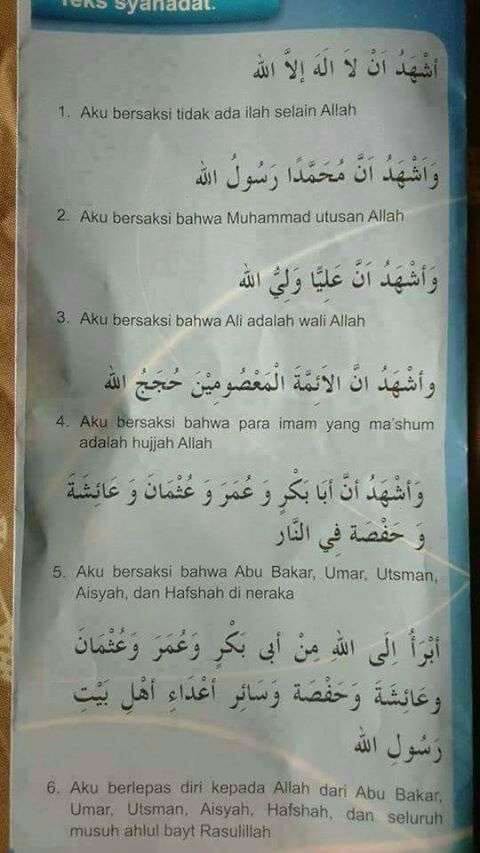 Teks syahadat:
أَشْهَدُ اَنْ لاَ اَلَهَ إلاَّ الله
1. Aku bersaksi tidak ada ilah selain Allah
وَاَشْهَدُ اَنَّ مُحَمَّدًا رَسُولُ الله
2. Aku bersaksi bahwa Muhammad utusan Allah
وَأشْهَدُ اَنَّ عَلِيًّا وَلِيُّ الله
3. Aku bersaksi bahwa Ali adalah wali Allah
وأشْهَدُ انَّ الاَئِمَّةَ الْمَعْصُومِيْنَ حُجَجُ الله
4. Aku bersaksi bahwa para imam yang ma'shum
adalah hujjah Allah
وَأشْهَدُ أنَّ أبَا بَكْرٍ وَ عُمَرَ وَ عُثْمَانَ وَ عَائِشَةَ
وَ حَفْصَةَ فِي النَّار
5. Aku bersaksi bahwa Abu Bakar, Umar, Utsman,
Aisyah, dan Hafshah di neraka
أبْرَأُ اِلَى اللهِ مِنْ أبى بَكْرٍ وَعُمَرَ وَعُثْمَانَ
وعَائِشَةَ وَحَفْصَةَ وَسَائِرِ أعْدَاءِ أهْلِ بَيْتِ
رَسُولِ الله
6. Aku berlepas diri kepada Allah dari Abu Bakar,
Umar, Utsman, Aisyah, Hafshah, dan seluruh
musuh ahlul bayt Rasulillah